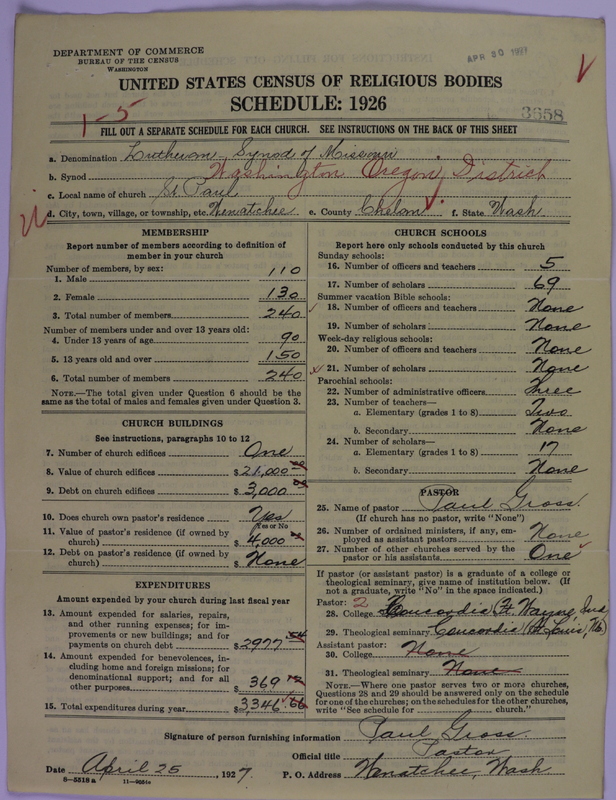 DEPARTMENT OF COMMERCE
BUREAU OF THE CENSUS
WASHINGTON
APR 30 1927
UNITED STATES CENSUS OF RELIGIOUS BODIES
SCHEDULE: 1926
1-5
3658
FILL OUT A SEPARATE SCHEDULE FOR EACH CHURCH. SEE INSTRUCTIONS ON THE BACK OF THIS SHEET
a. Denomination Lutheran Synod of Missouri
b. Synod Washington Oregon District
c. Local name of church St. Paul
d. City, town, village, or township, etc. Wenatchee e. County Chelan f. State Wash
MEMBERSHIP
Report number of members according to definition of
member in your church
Number of members, by sex:
1. Male 110
2. Female 130
3. Total number of members 240
Number of members under and over 13 years old:
4. Under 13 years of age 90
5. 13 years old and over 150
6. Total number of members 240
NOTE.—The total given under Question 6 should be the
same as the total of males and females given under Question 3.
CHURCH BUILDINGS
See instructions, paragraphs 10 to 12
7. Number of church edifices One
8. Value of church edifices $21,000
9. Debt on church edifices $3,000
10. Does church own pastor's residence Yes
Yes or No
11. Value of pastor's residence (if owned by
church) $4,000
12. Debt on pastor's residence (if owned by
church) $None
EXPENDITURES
Amount expended by your church during last fiscal year
13. Amount expended for salaries, repairs,
and other running expenses; for im-
provements or new buildings; and for
payments on church debt $2977 54
14. Amount expended for benevolences, in-
cluding home and foreign missions; for
denominational support; and for all
other purposes $369 12
15. Total expenditures during year $3,346 66
CHURCH SCHOOLS
Report here only schools conducted by this church
Sunday schools:
16. Number of officers and teachers 5
17. Number of scholars 69
Summer vacation Bible schools:
18. Number of officers and teachers None
19. Number of scholars None
Week-day religious schools:
20. Number of officers and teachers None
21. Number of scholars None
Parochial schools:
22. Number of administrative officers Three
23. Number of teachers—
a. Elementary (grades 1 to 8) Two
b. Secondary None
24. Number of scholars—
a. Elementary (grades 1 to 8) 17
b. Secondary None
PASTOR
25. Name of pastor Paul Gross
(If church has no pastor, write "None")
26. Number of ordained ministers, if any, em-
ployed as assistant pastors None
27. Number of other churches served by the
pastor or his assistants One
If pastor (or assistant pastor) is a graduate of a college or
theological seminary, give name of institution below. (If
not a graduate, write "No" in the space indicated.)
Pastor: 2
28. College Concordia (Ft. Wayne, Ind.
29. Theological seminary Concordia (St. Louis, Mo)
Assistant pastor:
30. College None
31. Theological seminary None
NOTE.—Where one pastor serves two or more churches,
Questions 28 and 29 should be answered only on the schedule
for one of the churches; on the schedules for the other churches,
write "See schedule for church."
Signature of person furnishing information Paul Gross
Official title Pastor
Date April 25, 1927 P. O. Address Wenatchee, Wash.
8—5318 a 11—9051a